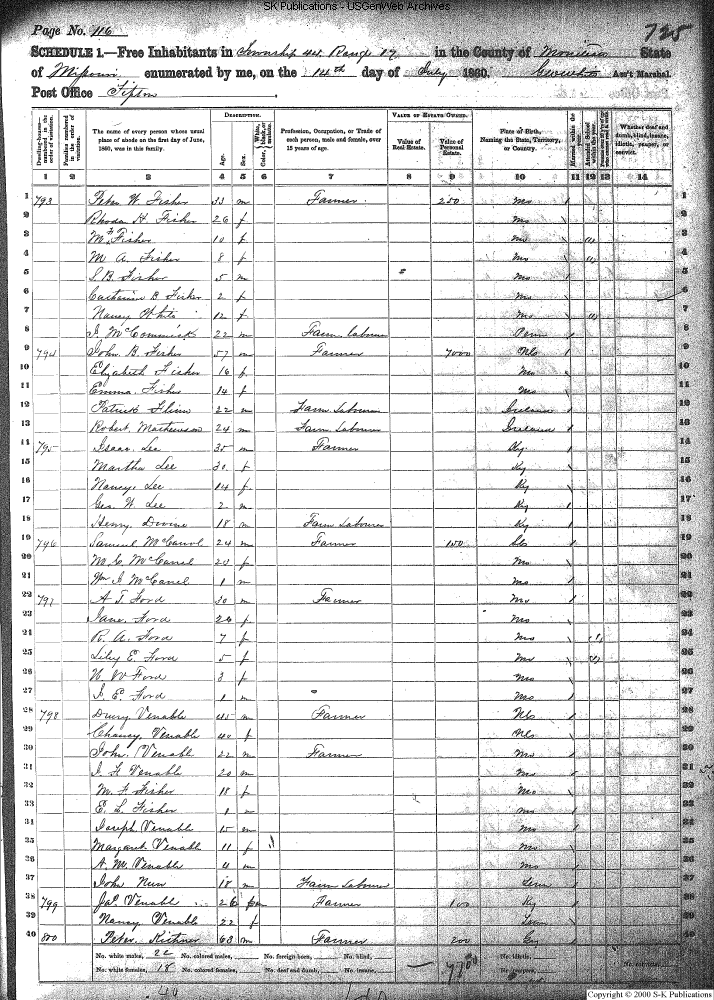 SK Publications - USGenWeb Archives
Page No. 116
725
SCHEDULE 1.—Free Inhabitants in Township 44 Range 17 in the County of Moniteau State
of Missouri enumerated by me, on the 14th day of July 1860. Ass't Marshal.
Post Office Tipton
DESCRIPTION. VALUE OF ESTATE OWNED.
Dwelling-houses— numbered in the order of visitation.
Families numbered in the order of visitation.
The name of every person whose usual place of abode on the first day of June, 1860, was in this family.
Age.
Sex.
Color, White, black, or mulatto.
Profession, Occupation, or Trade of each person, male and female, over 15 years of age.
Value of Real Estate.
Value of Personal Estate.
Place of Birth, Naming the State, Territory, or Country.
Married within the year.
Attended School within the year.
Whether deaf and dumb, blind, insane, idiotic, pauper, or convict.
1 2 3 4 5 6 7 8 9 10 11 12 13 14
1 793 Peter W Fisher 33 m Farmer 250 Mo 1
2 Rhoda H Fisher 26 f Mo 2
3 Fisher 10 f Mo 3
4 M A. Fisher 8 f Mo 4
5 S B Fisher 5 m Mo 5
6 Catharine B Fisher 2 f Mo 6
7 Nancy White 12 f Mo 7
8 J. McCommick 22 m Farm labourer Penn 8
9 794 John B. Fisher 57 m Farmer 7000 9
10 Elizabeth Fisher 16 f Mo 10
11 Emma Fisher 14 f Mo 11
12 Patrick Flinn 22 m Farm Labourer Ireland 12
13 Robert Mathewson 24 m Farm Labourer Ireland 13
14 795 Isaac Lee 35 m Farmer Ky 14
15 Martha Lee 30 f Ky 15
16 Nancy Lee 14 f Ky 16
17 Geo. W Lee 2 m Ky 17
18 Henry Divine 18 m Farm Labourer Ky 18
19 796 Samuel McCarrol 24 m Farmer 150 19
20 M. C. McCarrel 20 f Mo 20
21 Wm J. McCarrel 1 m Mo 21
22 797 A T. Ford 30 m Farmer Mo 22
23 Jane Ford 24 f Mo 23
24 R. A. Ford 7 f Mo 24
25 Liley E. Ford 5 f Mo 25
26 Ford 3 f Mo 26
27 J. E. Ford 1 m Mo 27
28 798 Drury Venable 45 m Farmer 28
29 Chancy Venable 40 f 29
30 John Venable 22 m Farmer Mo 30
31 J. F Venable 20 m Mo 31
32 M. F Fisher 18 f Mo 32
33 E. L. Fisher 1 m Mo 33
34 Joseph Venable 15 m Mo 34
35 Margaret Venable 11 f Mo 35
36 A. M. Venable 4 m Mo 36
37 John 18 m Farm Labourer Tenn 37
38 799 Jas. Venable 26 m Farmer 100 Ky 38
39 Nancy Venable 22 f 39
40 800 Peter 63 m Farmer 200 Ger 40
No. white males, 22 No. colored males, No. foreign born, No. blind, No. idiotic,
No. white females, 18 No. colored females, No. deaf and dumb, No. insane, No. paupers,
No. convicts,
40
Copyright © 2000 S-K Publications